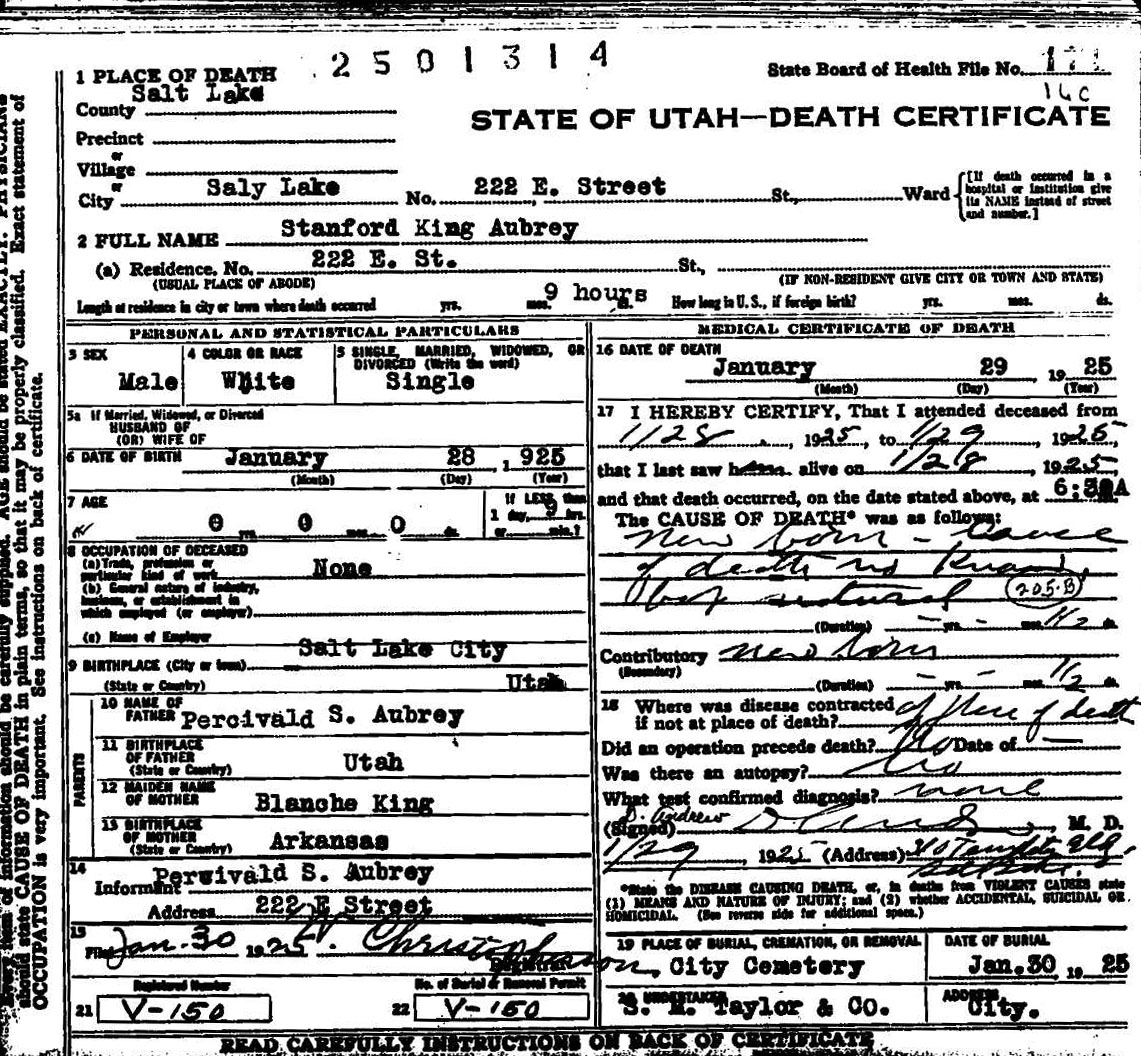 2501314
1 PLACE OF DEATH
State Board of Health File No. 171
16C
County Salt Lake
STATE OF UTAH—DEATH CERTIFICATE
Precinct
or
Village
or
City Saly Lake No. 222 E. Street St., Ward
[If death occurred in a hospital or institution give its NAME instead of street and number.]
2 FULL NAME Stanford King Aubrey
(a) Residence. No. 222 E. St. St.,
(USUAL PLACE OF ABODE) (IF NON-RESIDENT GIVE CITY OR TOWN AND STATE)
Length of residence in city or town where death occurred yrs. mos. 9 hours ds. How long in U. S., if foreign birth? yrs. mos. ds.
PERSONAL AND STATISTICAL PARTICULARS
3 SEX
Male
4 COLOR OR RACE
White
5 SINGLE, MARRIED, WIDOWED, OR
DIVORCED (Write the word)
Single
5a If Married, Widowed, or Divorced
HUSBAND OF
(OR) WIFE OF
6 DATE OF BIRTH January 28, 925
(Month) (Day) (Year)
7 AGE
0 yrs. 0 mos. 0 ds.
If LESS than
1 day, 9 hrs.
or min.?
8 OCCUPATION OF DECEASED
(a) Trade, profession or
particular kind of work None
(b) General nature of industry,
business, or establishment in
which employed (or employer)
(c) Name of Employer
9 BIRTHPLACE (City or town) Salt Lake City
(State or Country) Utah
PARENTS
10 NAME OF
FATHER Percivald S. Aubrey
11 BIRTHPLACE
OF FATHER
(State or Country) Utah
12 MAIDEN NAME
OF MOTHER Blanche King
13 BIRTHPLACE
OF MOTHER
(State or Country) Arkansas
14
Informant Perwivald S. Aubrey
Address 222 E Street
15
Filed Jan. 30 1925 Christopherson
Registrar
Registered Number
21 V-150
No. of Burial or Removal Permit
22 V-150
MEDICAL CERTIFICATE OF DEATH
16 DATE OF DEATH
January 29 1925
(Month) (Day) (Year)
17 I HEREBY CERTIFY, That I attended deceased from
1/28, 1925, to 1/29 1925,
that I last saw h alive on 1/28, 1925,
and that death occurred, on the date stated above, at 6:30A m.
The CAUSE OF DEATH* was as follows:
New born - Cause
of death no known
but natural 205-B
(Duration) - yrs. - mos. 1/2 ds.
Contributory new born
(Secondary)
(Duration) - yrs. - mos. 1/2 ds.
18 Where was disease contracted
if not at place of death? of place of death
Did an operation precede death? No Date of —
Was there an autopsy? No
What test confirmed diagnosis? none
D. Andrew
(Signed) M. D.
1/29, 1925 (Address)
*State the DISEASE CAUSING DEATH, or, in deaths from VIOLENT CAUSES state
(1) MEANS AND NATURE OF INJURY; and (2) whether ACCIDENTAL, SUICIDAL OR
HOMICIDAL. (See reverse side for additional space.)
19 PLACE OF BURIAL, CREMATION, OR REMOVAL
City Cemetery
DATE OF BURIAL
Jan. 30 1925
20 UNDERTAKER
S. M. Taylor & Co.
ADDRESS
City.
READ CAREFULLY INSTRUCTIONS ON BACK OF CERTIFICATE
item of information should be carefully supplied. AGE should be stated EXACTLY. PHYSICIANS
should state CAUSE OF DEATH in plain terms, so that it may be properly classified. Exact statement of
OCCUPATION is very important. See instructions on back of certificate.